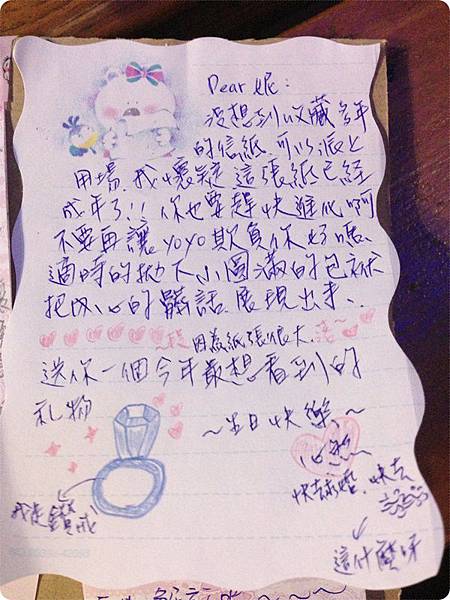 Dear 妮：
沒想到收藏多年
的信紙可以派上
用場, 我懷疑這張紙已經
成年了!! 你也要趕快進化啊
不要再讓YOYO欺負你好嗎、
適時的拋下小圓滿的包袱
把內心的髒話展現出來、
因為紙張很大
送你一個今年最想看到的
礼物
~生日快樂~
快去
我是鑽戒
這什麼呀